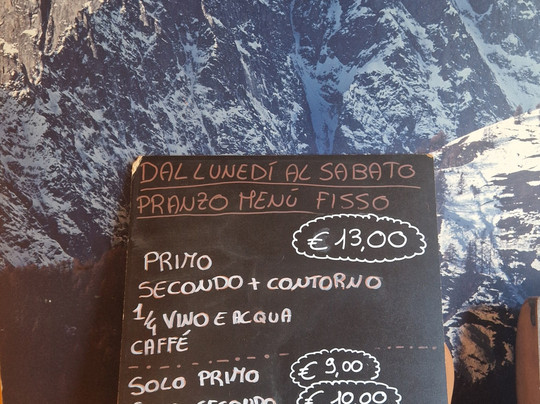 DAL LUNEDÍ AL SABATO
PRANZO MENÚ FISSO
€ 13,00
PRIMO
SECONDO + CONTORNO
1/4 VINO E ACQUA
CAFFÉ
SOLO PRIMO € 9,00
SECONDO € 10,00